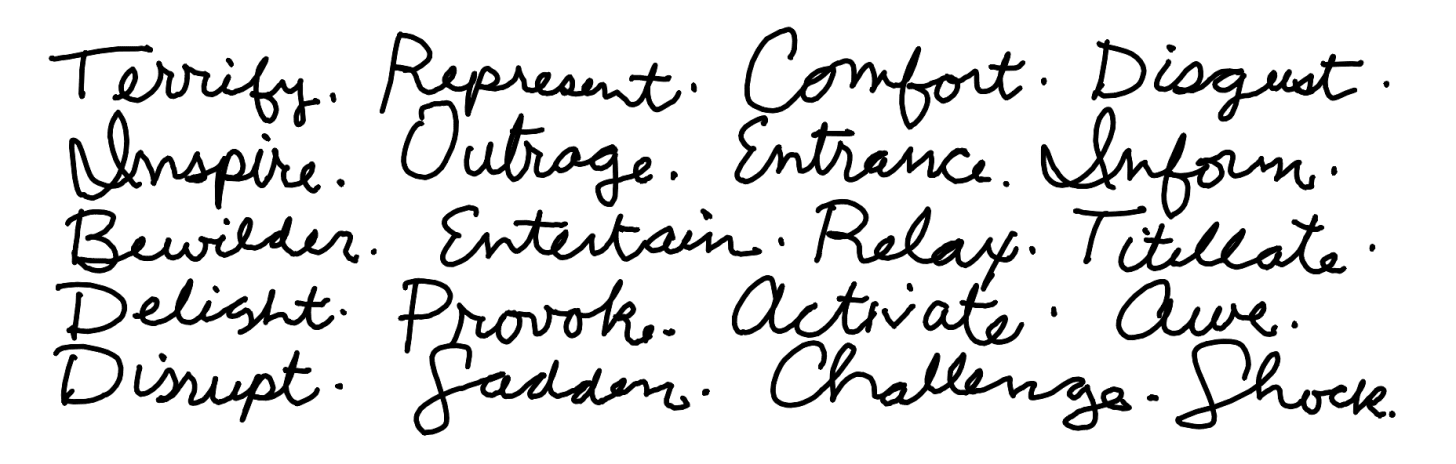 Terrify. Represent. Comfort. Disgust.
Inspire. Outrage. Entrance. Inform.
Bewilder. Entertain. Relax. Titillate.
Delight. Provoke. Activate. Awe.
Disrupt. Sadden. Challenge. Shock.